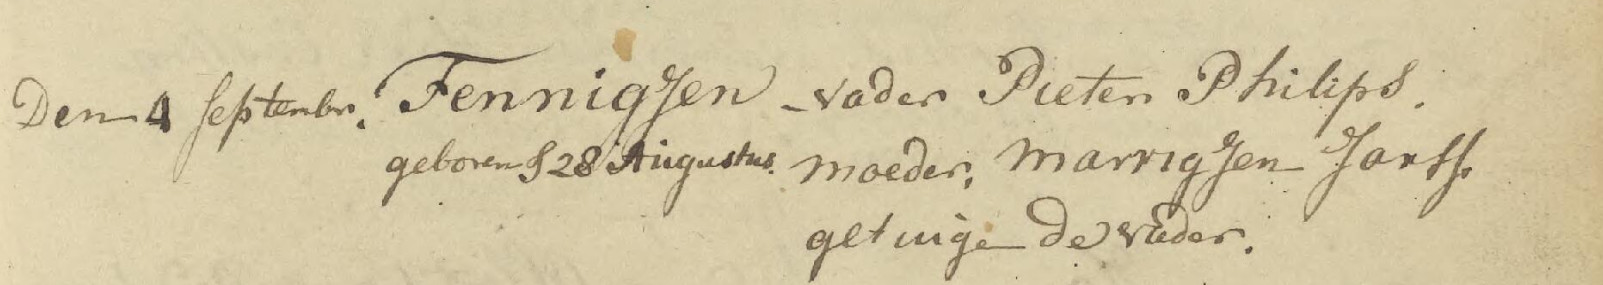 Den 4 septembr. Fennigjen vader Pieter Philips.
geboren d 28 Augustus. moeder, Marrigjen Jans.
getuige de vader.